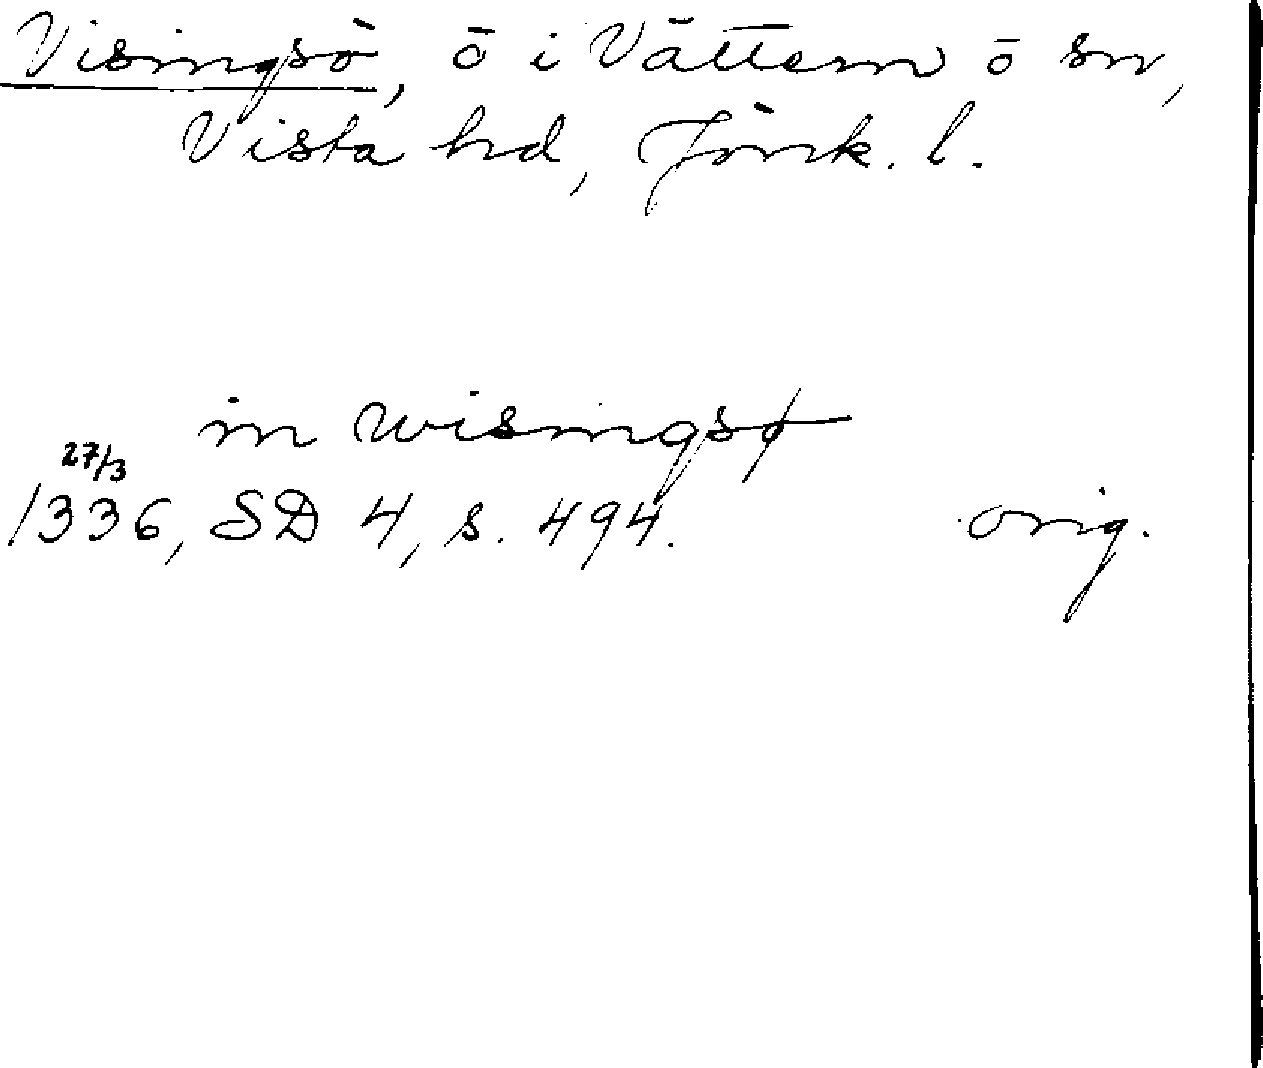 Visingsö, ö i Vättern o sn,
Vista hd, Jönk. l.
in wisingsø
27/3
1336, SD 4, s. 494. orig.